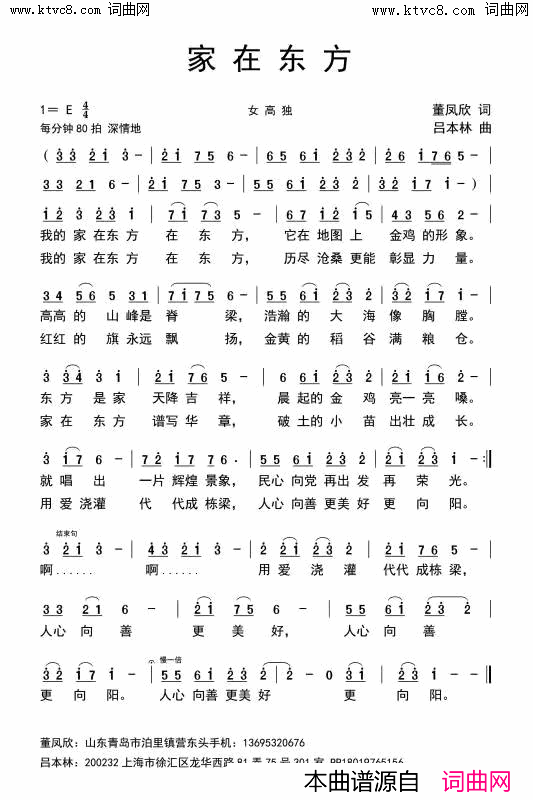 www.ktvc8.com 词曲网 www.ktvc8.com 词曲网
家在东方
1= E 4/4 女高独 董凤欣 词
每分钟80拍 深情地 吕本林 曲
( 3 3 2 1 2 1 3 - | 2 1 7 5 6 - | 6 5 6 1 2 - | 2 6 1 7 6 5 - |
3 3 2 1 6 - | 2 1 7 5 3 - | 5 5 6 1 2 3 2 - | 2 2 1 7 6 - )
1 2 3 2 3 2 | 7 1 7 3 5 - | 6 7 1 2 1 5 | 4 3 5 6 2 - |
我的 家 在东 方 在 东 方, 它在 地图 上 金鸡 的形 象。
我的 家 在东 方 在 东 方, 历尽 沧桑 更能 彰显 力 量。
3 4 5 6 5 6 5 | 7 1 7 5 2 - | 5 5 6 1 2 3 2 | 3 2 1 7 6 - |
高高 的 山 峰是 脊 梁, 浩瀚 的 大 海 像 胸 膛。
红红 的 旗 永远 飘 扬, 金黄 的 稻 谷 满 粮 仓。
3 3 4 3 1 | 2 1 7 6 5 - | 6 6 1 2 3 2 | 2 1 1 6 2 - |
东 方 是 家 天降 吉 祥, 晨 起的 金 鸡 亮一 亮 嗓。
家 在 东 方 谱写 华 章, 破 土的 小 苗 出壮 成 长。
3 1 7 6 - | 7 2 1 7 7 2 6 . | 5 5 6 1 2 2 3 | 2 1 2 3 1 - :||
就 唱 出 一片 辉煌 景象, 民心 向党 再出 发 再 荣 光。
用 爱 浇灌 代 代成 栋梁, 人心 向善 更美 好 更 向 阳。
结束句
3 2 1 3 - | 4 3 2 1 3 - | 2 2 1 2 3 2 | 2 1 7 6 5 - |
啊...... 啊...... 用 爱 浇 灌 代代 成 栋 梁,
3 3 2 1 6 - | 2 1 7 5 6 - | 5 5 6 1 2 2 3 |
人心 向 善 更 美 好, 人心 向 善
慢一倍
3 2 1 7 1 - | 5 5 6 1 2 2 3 2 | 2 - 0 3 | 2 1 1 - ||
更 向 阳。 人心 向善 更美 好 更 向 阳。
董凤欣:山东青岛市泊里镇营东头手机:13695320676
吕本林:200232上海市徐汇区龙华西路81弄75号301室
本曲谱源自 词曲网